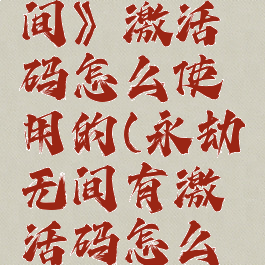 间》激活
码怎么使
用的(永劫
无间有激
活码怎么